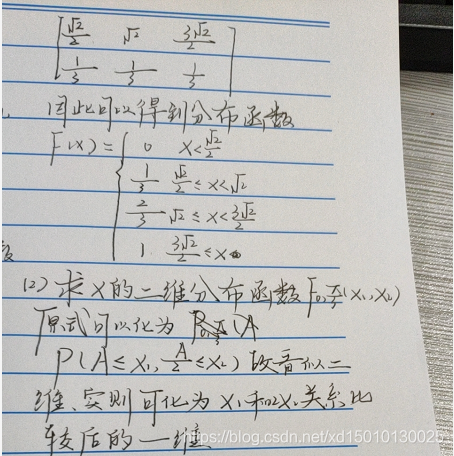 √2/2 √2 3√2/2
1/3 1/3 1/3
因此可以得到分布函数
F(x)= 0 x<√2/2
1/3 √2/2≤x<√2
2/3 √2≤x<3√2/2
1 3√2/2≤x
(2) 求X的二维分布函数F0,π/3(x1,x2)
原式可以化为
P(A≤x1, A/2≤x2) 故看似二
维、实则可化为x1和x2关系比
较后的一维
https://blog.csdn.net/xd15010130025
数